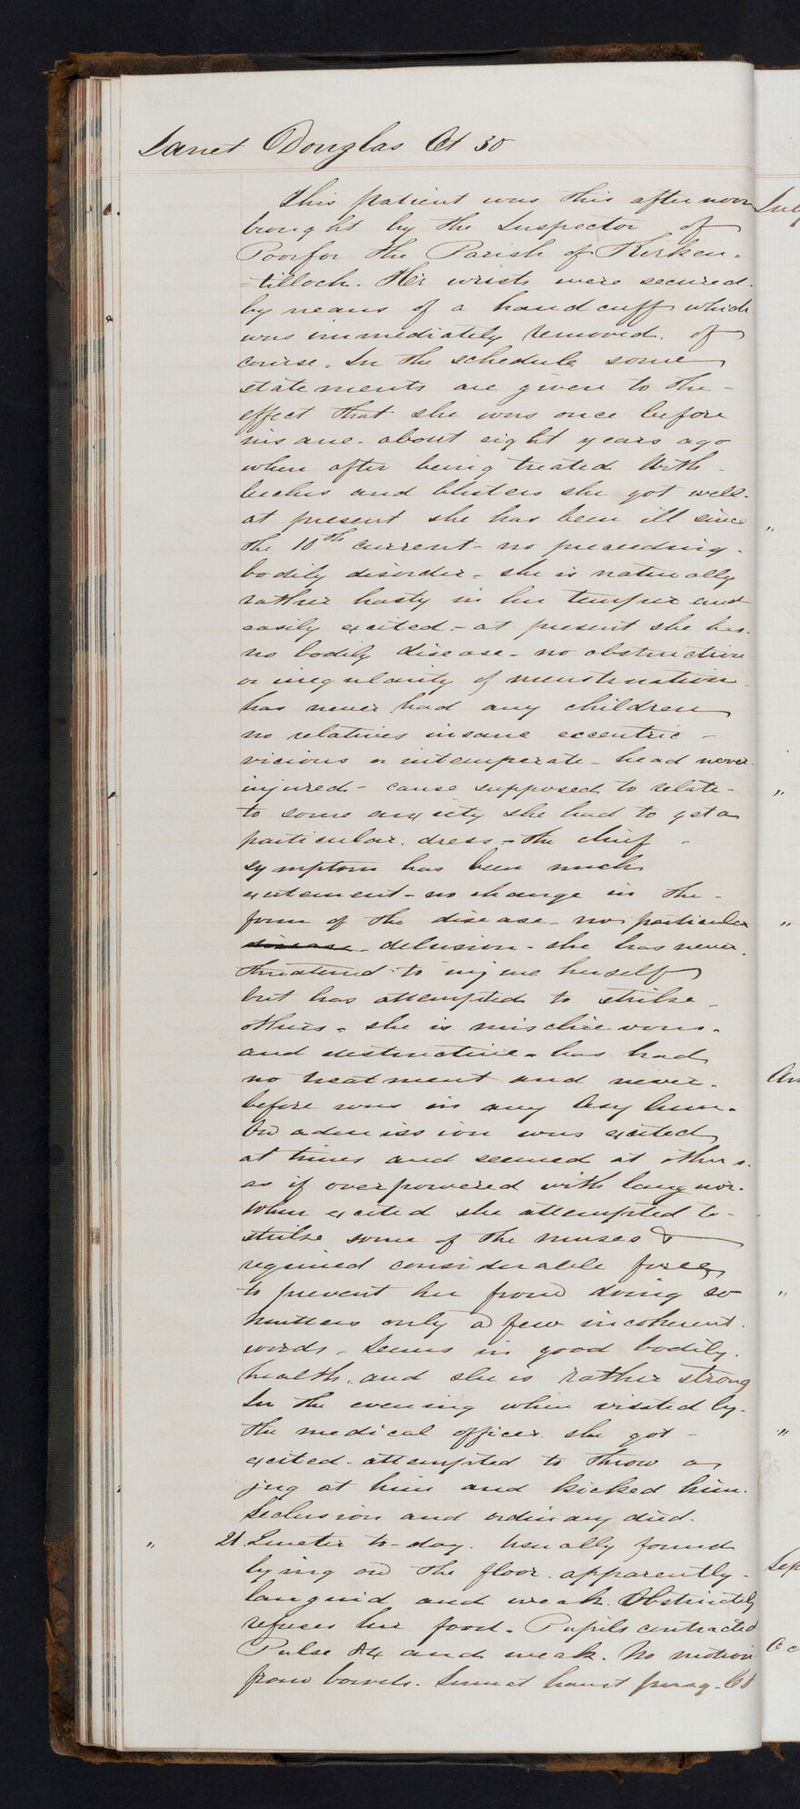 Janet Douglas Æt 30
This patient was this afternoon
brought by the Inspector of
Poor for the Parish of Kirken-
tilloch. Her wrists were secured
by means of a hand cuff which
was immediately removed. of
course. In the schedule some
statements are given to the -
effect that she was once before
insane. about eight years ago
when after being treated with
leeches and blisters she got well.
at present she has been ill since
the 10th current - no preceeding.
bodily disorder. she is naturally
rather hasty in her temper and
easily excited - at present she has.
no bodily disease. no obstruction
or irregularity of menstruation
has never had any children
no relatives insane eccentric -
vicious or intemperate - head never
injured - cause supposed to relate -
to some anxiety she had to get a
particular. dress - the chief -
symptom has been much
excitement - no change in the -
form of the disease - no particular
disease - delusion - she has never.
threatened to injure herself
but has attempted to strike -
others. she is mischievous.
and destructive. has had
no treatment and never.
before was in any Asylum.
On admission was excited
at times and seemed at others.
as if overpowered with languor.
When excited she attempted to -
strike some of the nurses &
required considerable force
to prevent her from doing so
mutters only a few incoherent.
words. Seems in good bodily.
health. and she is rather strong
In the evening when visited by.
the medical officer she got -
excited - attempted to throw a
jug at him and kicked him.
Seclusion and ordinary diet.
" 21 Quieter to-day. Usually found
lying on the floor. apparently -
languid and weak. Obstinately
refuses her food. Pupils contracted
Pulse 84 and weak. No motion
from bowels. Sumat haust purg.